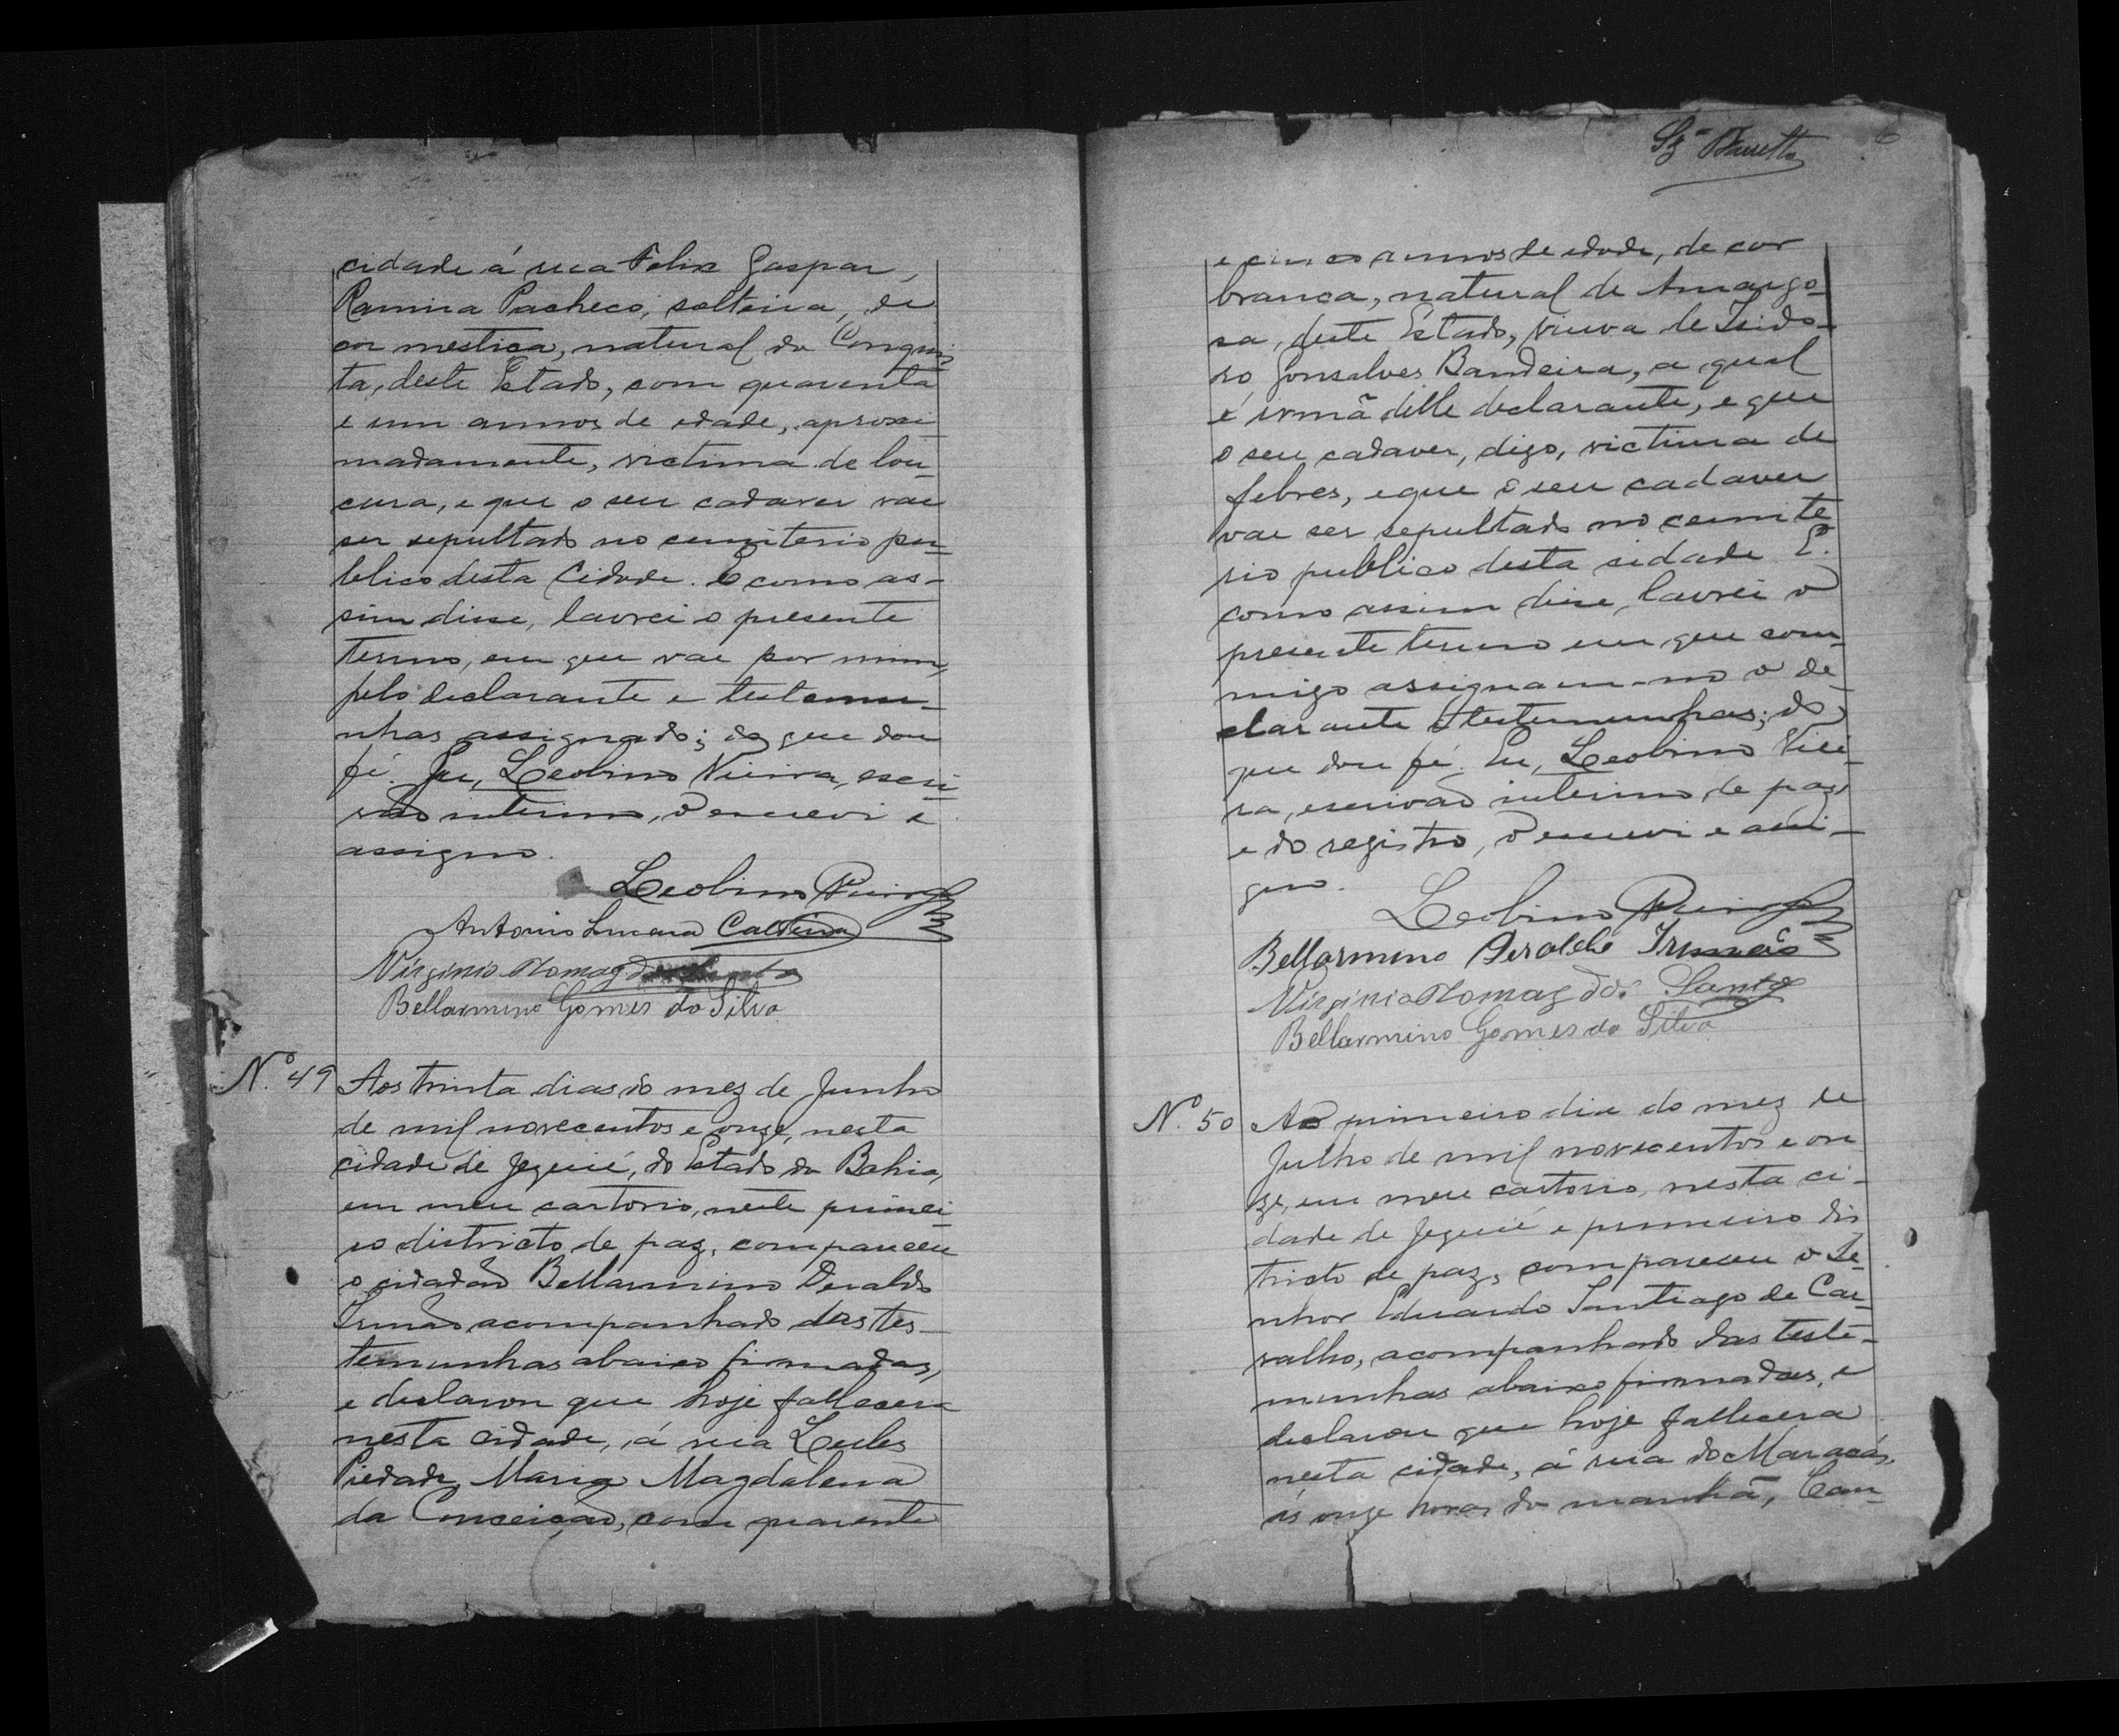 cidade á rua Felix Gaspar,
Ramira Pacheco, solteira, de
cor mestiça, natural da Conquis
ta, deste Estado, com quarenta
e um annos de edade, aproxi-
madamente, victima de lou-
cura, e que o seu cadaver vae
ser sepultado no cemiterio pu-
blico desta Cidade. E como as-
sim disse, lavrei o presente
termo, em que vae por mim,
pelo declarante e testemu-
nhas assignado; do que dou
fé. Eu, Leobino Vieira, escri-
vão interino, o escrevi e
assigno.
Leobino Vieira
Antonio Caldeira
Virginio Thomaz dos Santos
Bellarmino Gomes da Silva
Nº 49 Aos trinta dias do mez de Junho
de mil novecentos e onze, nesta
cidade de Jequié, do Estado da Bahia,
em meu cartorio, neste primei-
ro districto de paz, compareceu
o cidadão Bellarmino Deraldo
Irmão acompanhado das tes-
temunhas abaixo firmadas,
e declarou que hoje fallecera
nesta cidade, á rua
Piedade, Maria Magdalena
da Conceição, com quarenta
6
Sz Barretto
e cinco annos de edade, de cor
branca, natural de Amargo-
sa, deste Estado, viuva de Izido-
ro Gonsalves Bandeira, a qual
é irmã delle declarante, e que
o seu cadaver, digo, victima de
febres, e que o seu cadaver
vae ser sepultado no cemite
rio publico desta cidade. E.
como assim disse, lavrei o
presente termo em que com-
migo assignam-no o de-
clarante e testemunhas; do
que dou fé. Eu, Leobino Viei-
ra, escrivão interino de paz,
e do registro, o escrevi e assi-
gno.
Leobino Vieira
Bellarmino Deraldo Irmão
Virginio Thomaz dos Santos
Bellarmino Gomes da Silva
Nº 50 Ao primeiro dia do mez de
Julho de mil novecentos e on
ze, em meu cartorio, nesta ci-
dade de Jequié e primeiro dis
tricto de paz, compareceu o Se-
nhor Eduardo Santiago de Car-
valho, acompanhado das teste-
munhas abaixo firmadas, e
declarou que hoje fallecera
nesta cidade, á rua do Maracás,
ás onze horas da manhã, Can-